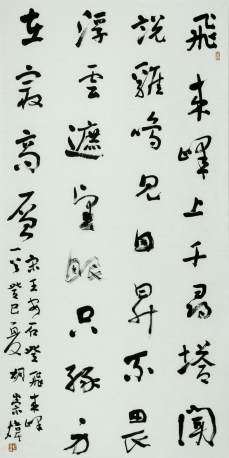 飛来峰上千尋塔聞
說雞鳴見日昇不畏
浮雲遮望眼只緣身
在最高層
宋王安石登飛来峰
一首癸巳夏胡崇煒